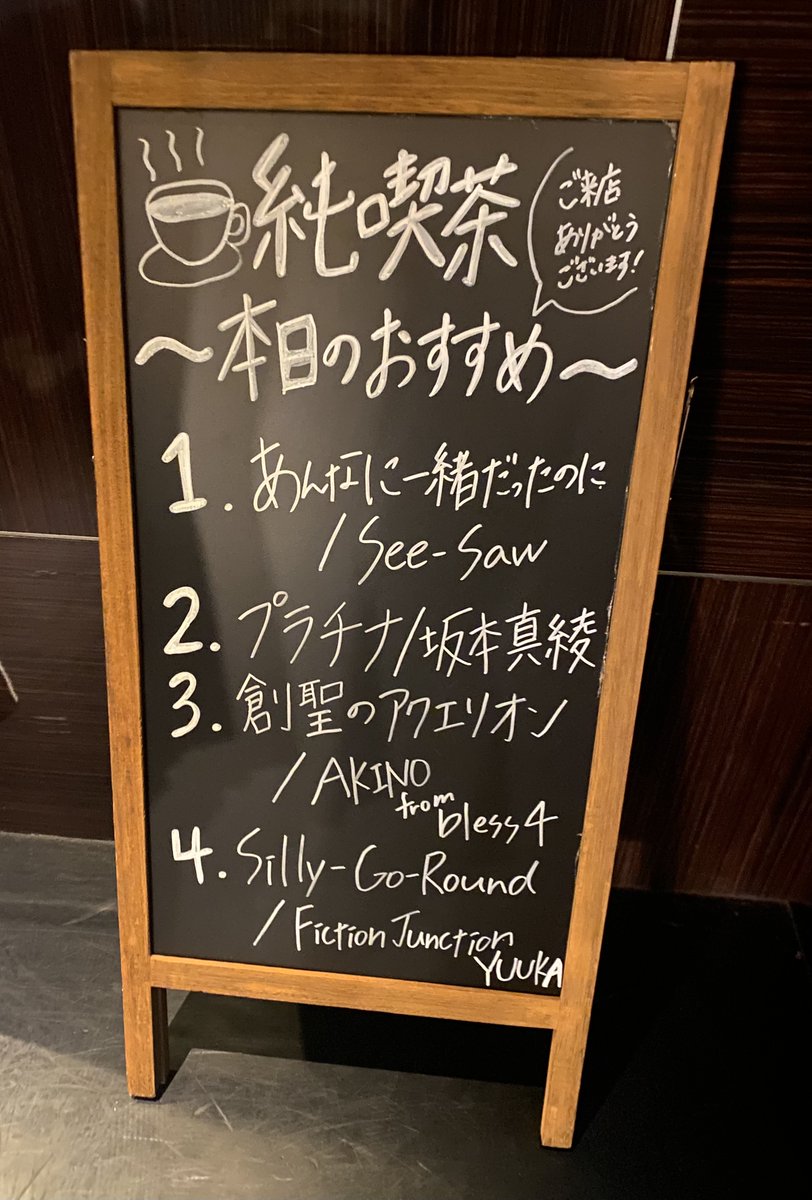 純喫茶
ご来店
ありがとう
ございます!
～本日のおすすめ～
1. あんなに一緒だったのに
/See-Saw
2. プラチナ/坂本真綾
3. 創聖のアクエリオン
/AKINO
from
bless4
4. Silly-Go-Round
/FictionJunction
YUUKA